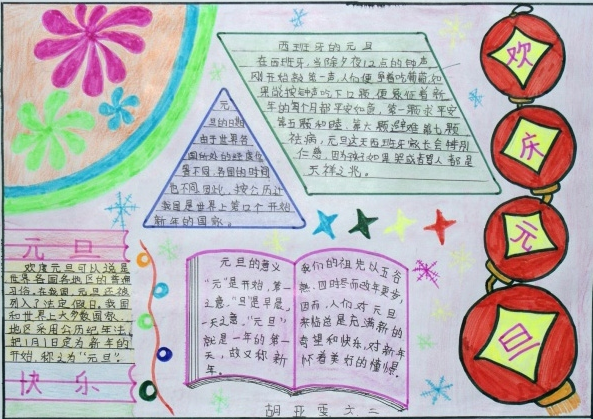 西班牙的元旦
在西班牙,当除夕夜12点的钟声
刚开始敲第一声,人们便争着吃葡萄.如
果能按钟声吃下12颗,便象征着新
年的每个月都平安如意,第一颗求平安
第五颗和睦,第六颗避难,第七颗
祛病,元旦这天西班牙家长会特别
仁慈,因为孩子如果哭或者骂人都是
不祥之兆。
元
旦的日期
由于世界各
国所处的经度位
置不同,各国的时间
也不同,因此,
我国是世界上第12个开始
新年的国家。
欢
庆
元
旦
元旦
欢度元旦可以说是
世界各国各地区的普遍
习俗,在我国,元旦还被
列入了法定假日,我国
和世界上大多数国家、
地区采用公历纪年法,
把1月1日定为新年的
开始,称之为“元旦”。
快乐
元旦的意义
“元”是开始,第一
之意,“旦”是早晨,
一天之意,“元旦”
就是一年的第一
天,故又称新
年。
我们的祖先以五谷
熟,四时尽而改年更岁,
因而,人们对元旦
来临总是充满新的
希望和快乐,对新年
怀着美好的憧憬。
胡亚雯 六二